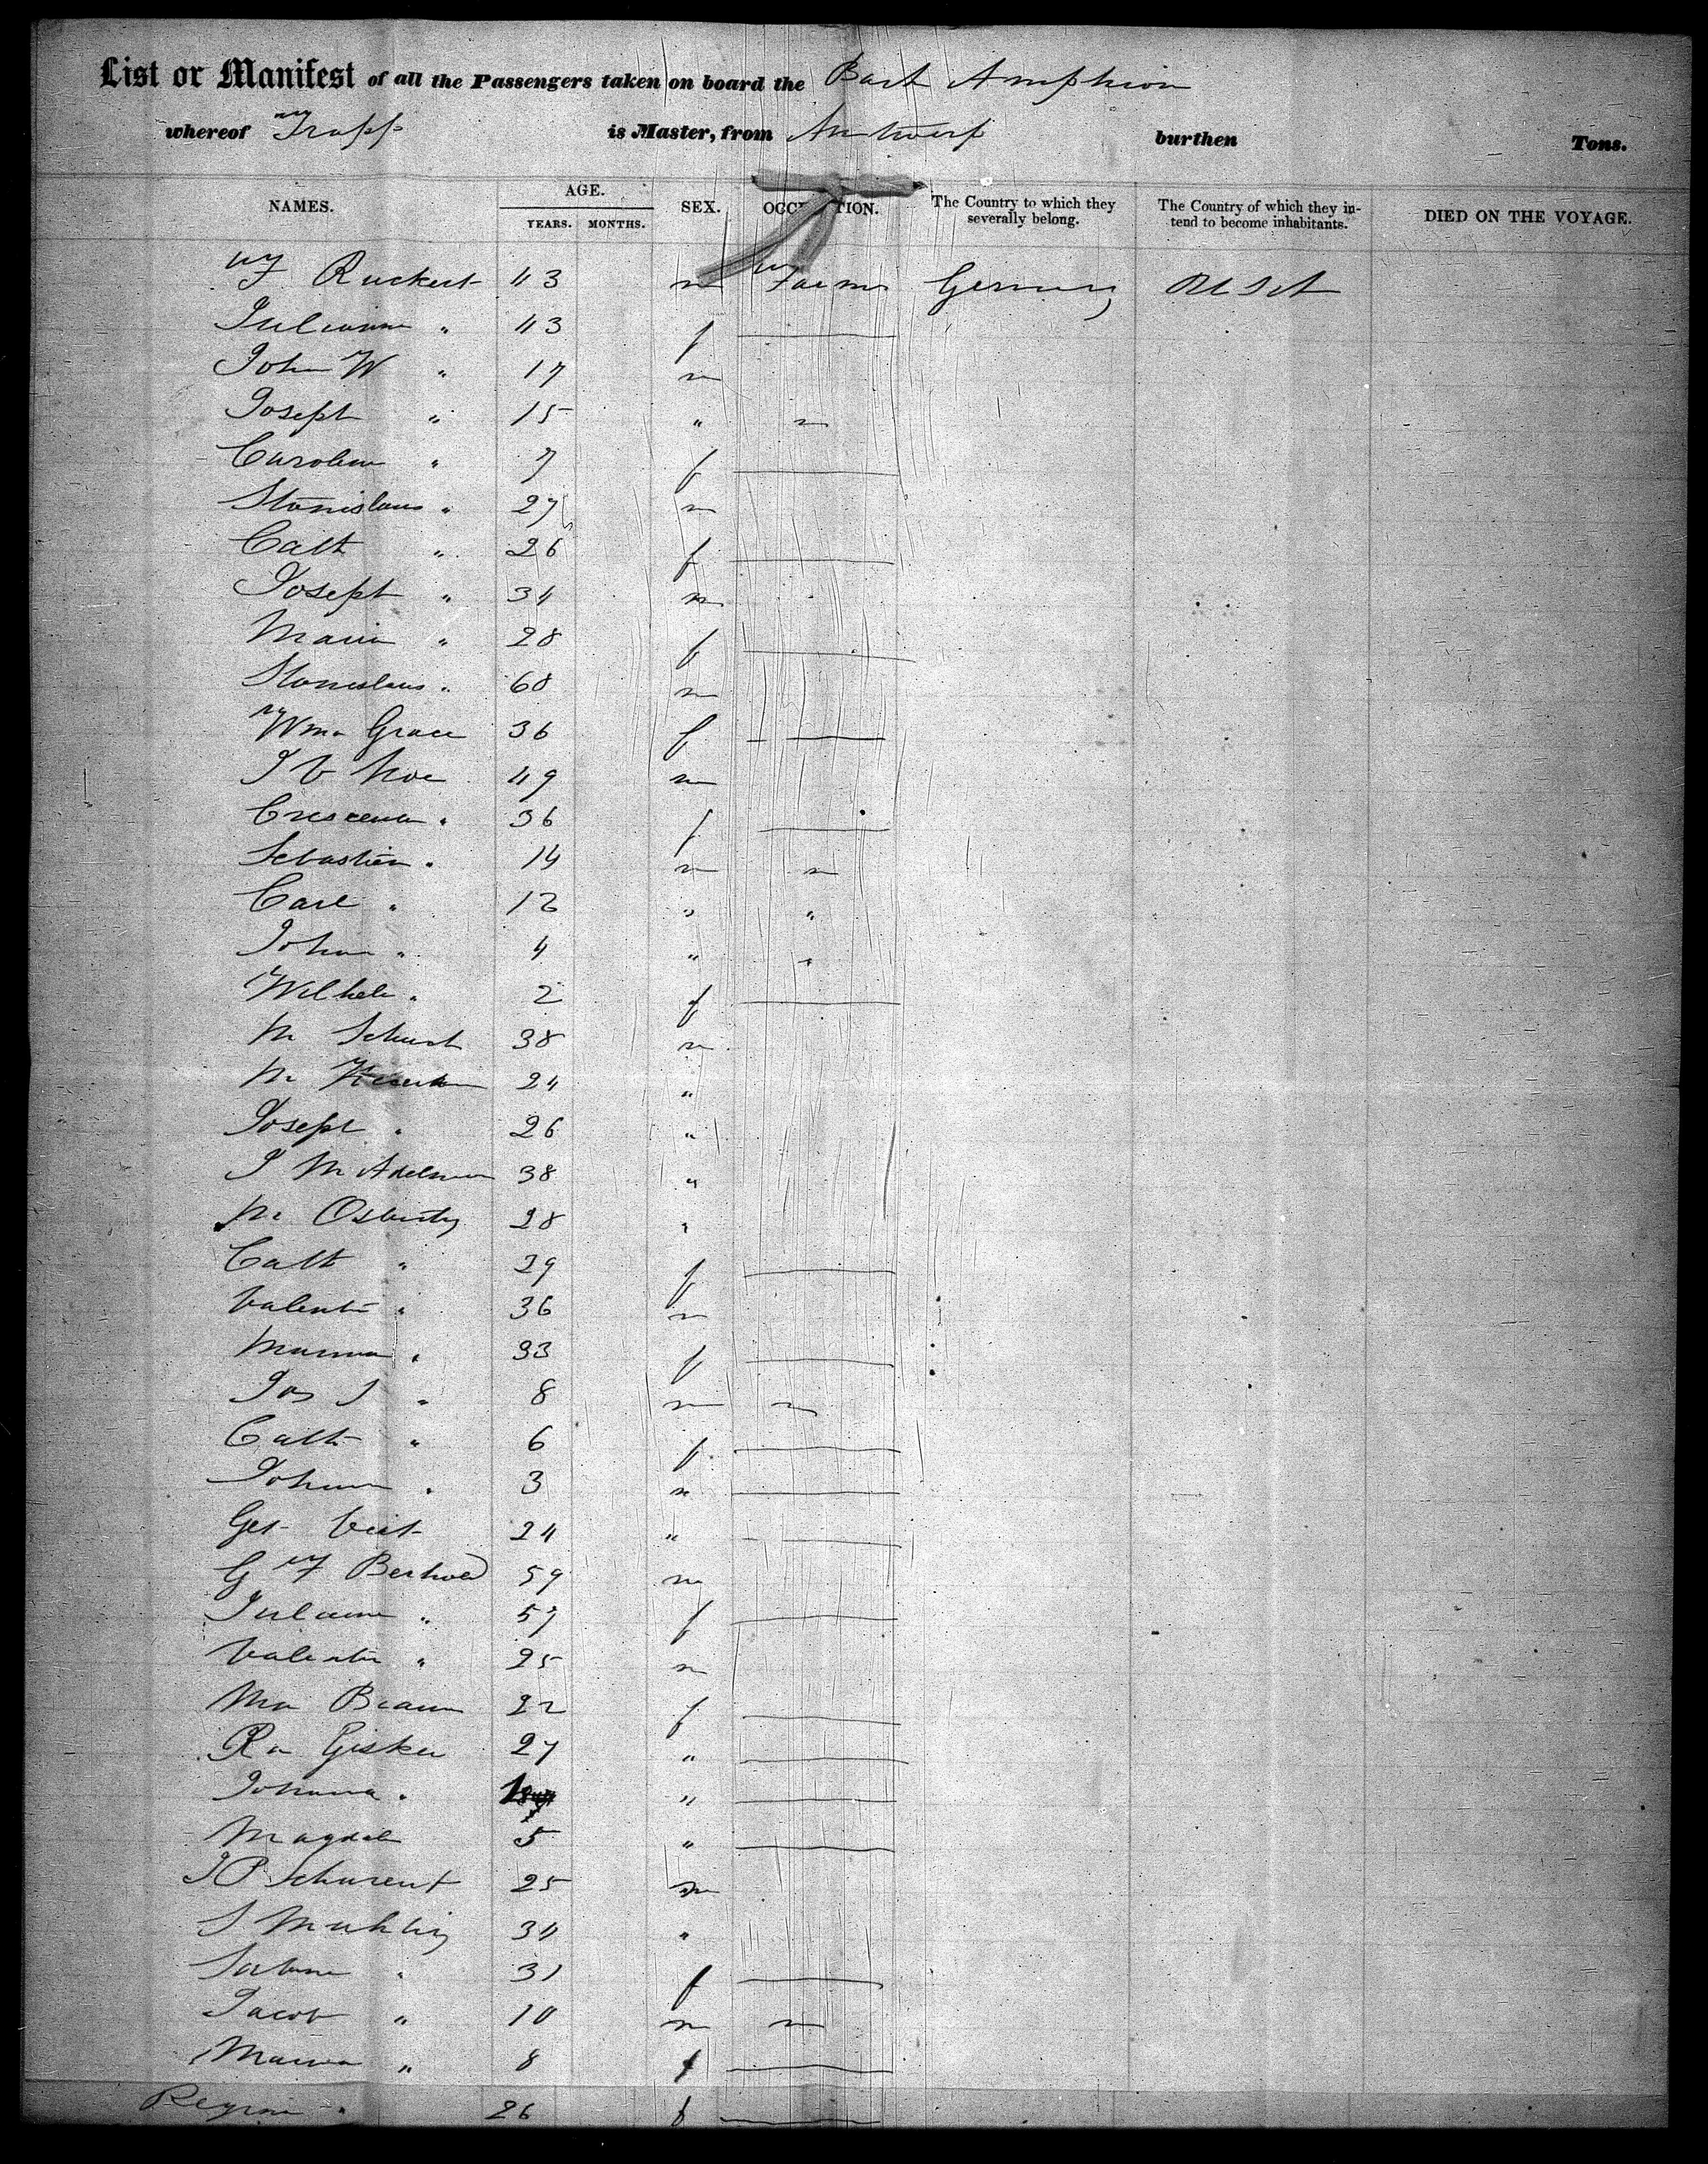 List or Manifest of all the Passengers taken on board the Bark Amphion
whereof Trapp is Master, from Antwerp burthen Tons.
NAMES. AGE. YEARS. MONTHS. SEX. OCCUPATION. The Country to which they severally belong. The Country of which they intend to become inhabitants. DIED ON THE VOYAGE.
F Ruckert 43 m Farmer Germany U S A
Julianna " 43 f
John W " 17 m
Joseph " 15 " "
Carolina " 7 f
Stanislaus " 27 m
Cath " 26 f
Joseph " 34 m
Maria " 28 f
Stanislaus " 68 m
Wma Grace 36 f
49 m
Crescentia " 36 f
Sebastian " 14 m
Carl " 12 " "
Johan " 4 " "
Wilhelm " 2 f
M 38 m
M 24 "
Joseph " 26 "
J M Adelman 38 "
M 28 "
Cath " 29 f
Valentin " 36 m
" 33 f
Jos J " 8 m
Cath " 6 f
Johann " 3 m
Veit 24 "
G F Berhold 59 m
Julianne " 57 f
Valentin " 25 m
Braun 22 f
Gisker 27 "
Johanna " "
Magdal 5 "
J P 25 m
S Muhling 34 "
Sabina " 31 f
Jacob " 10 m
Maria " 8 f
Regina " 26 f